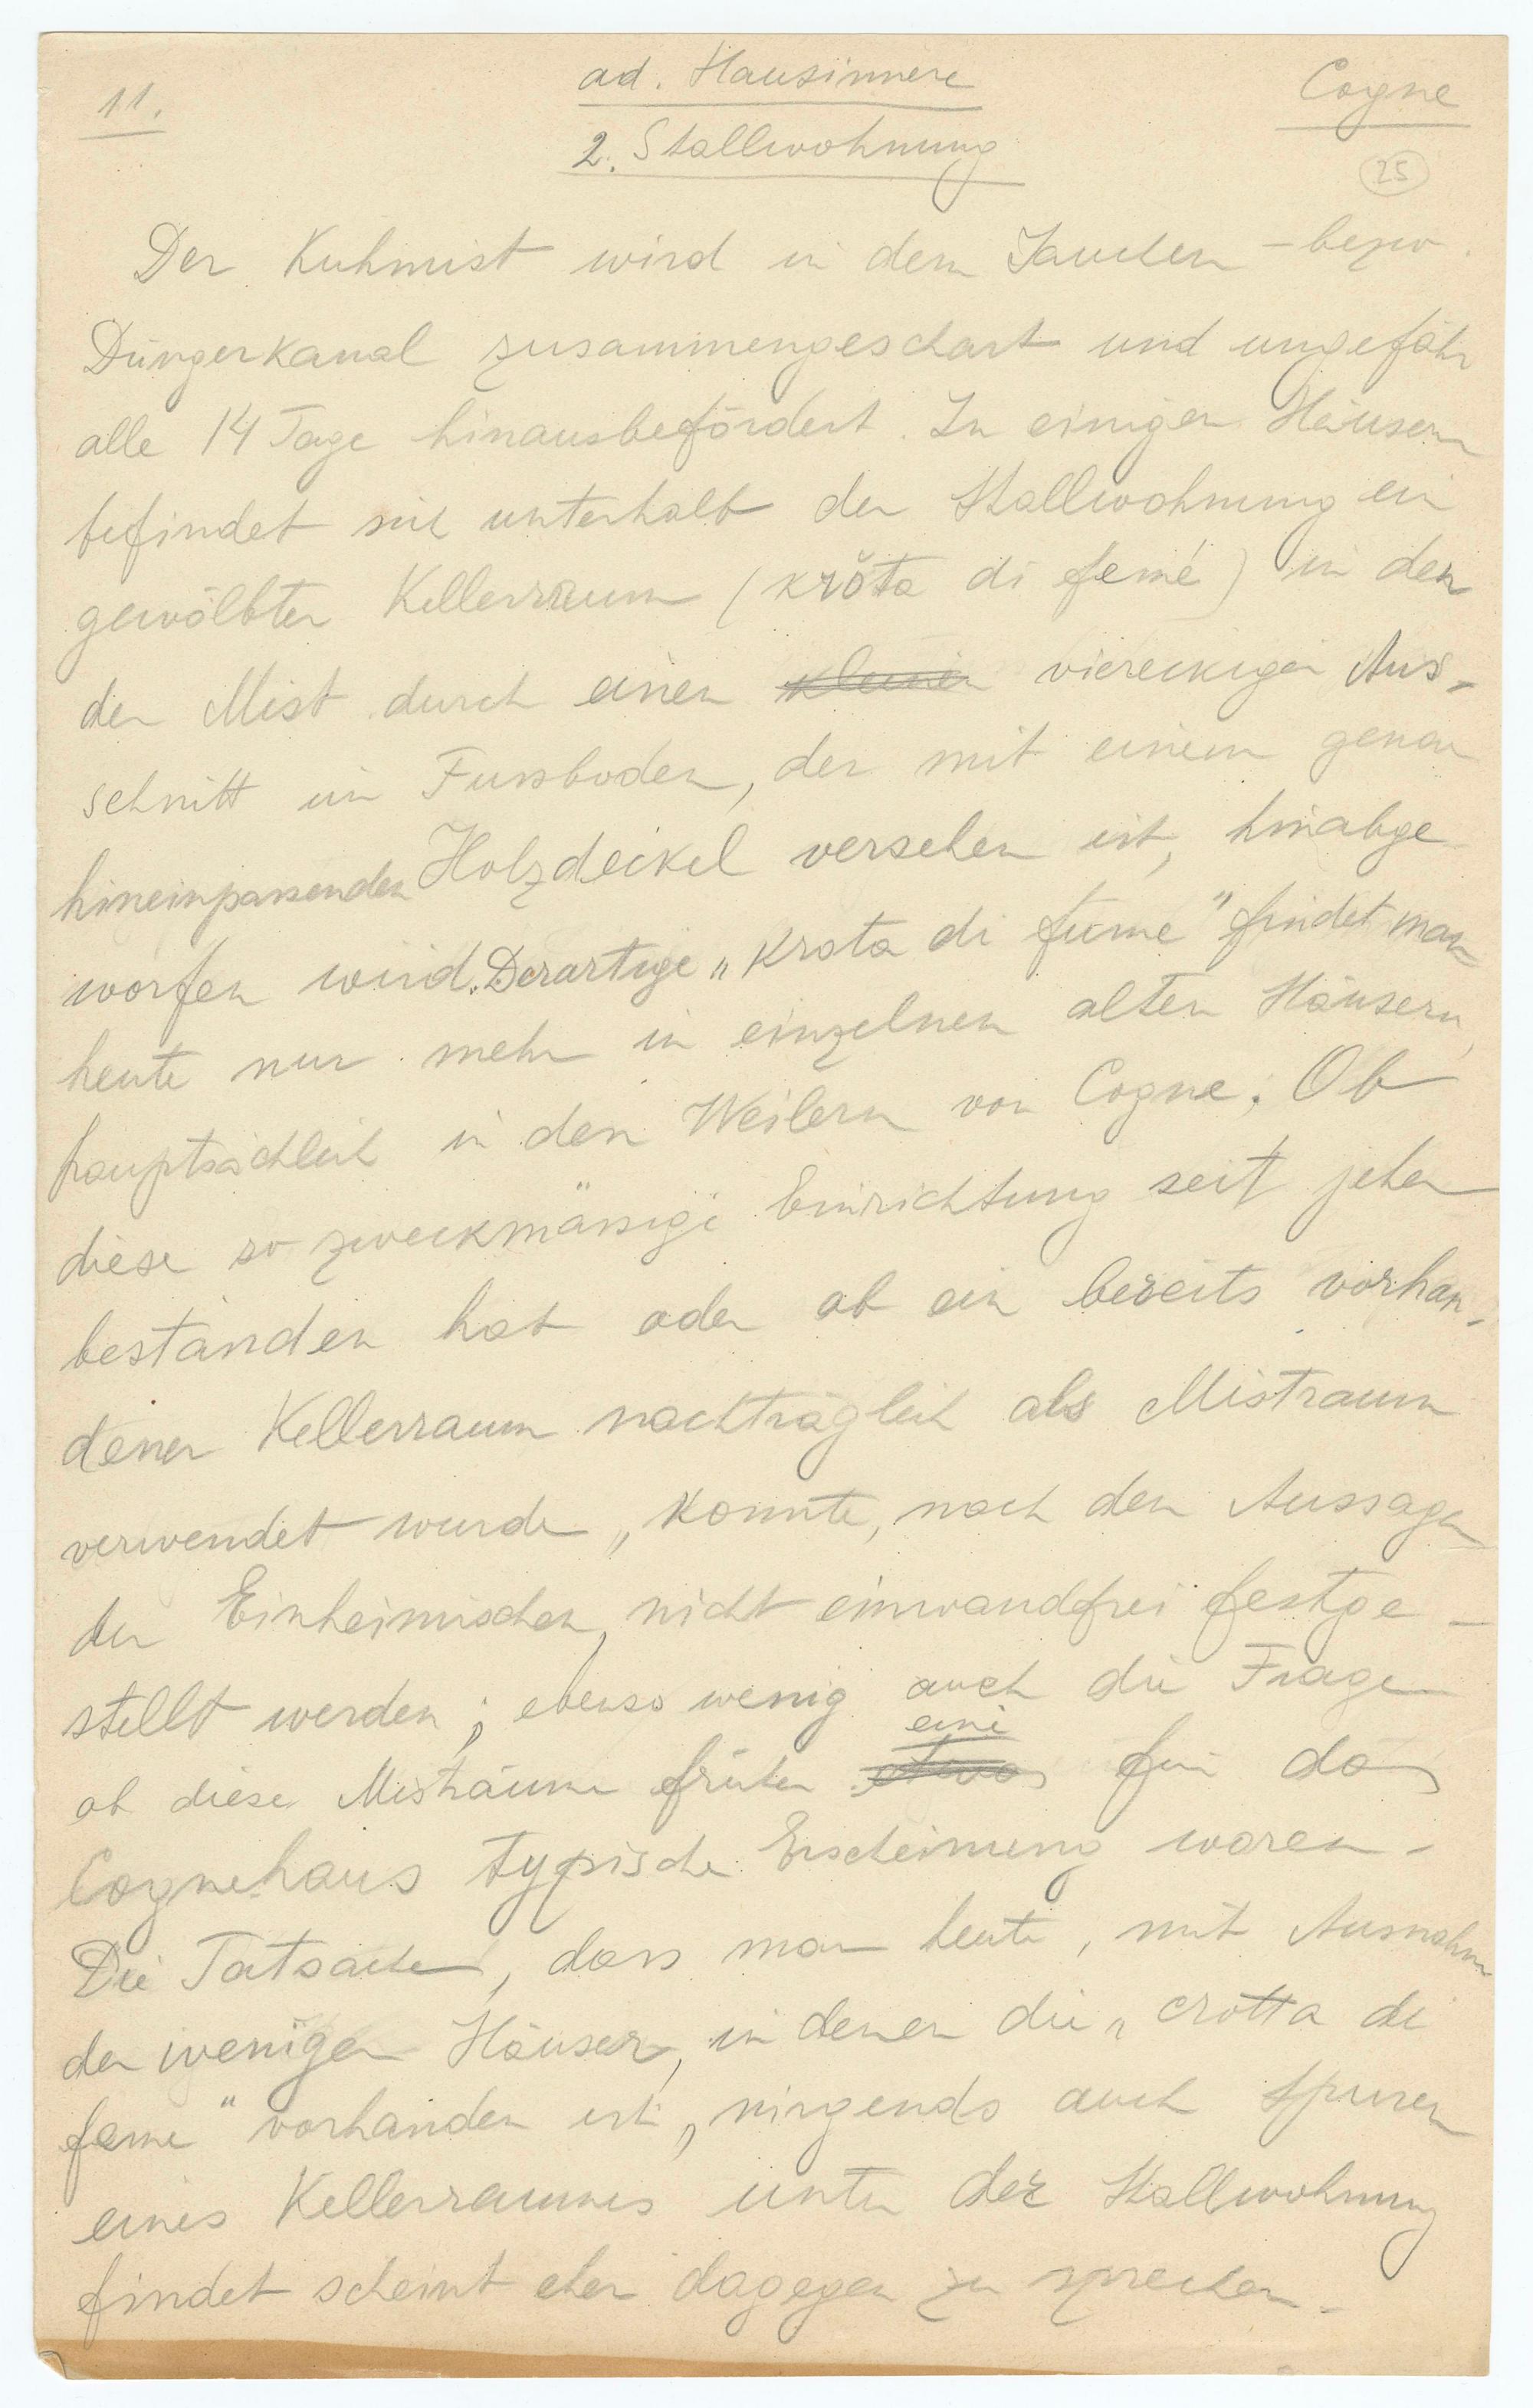 11.
ad. Hausinnere
Cogne
2. Stallwohnung
25
Der Kuhmist wird in dem Jauchen - bezw.
Düngerkanal zusammengeschart und ungefähr
alle 14 Tage hinausbefördert. In einigen Häusern
befindet sich unterhalb der Stallwohnung ein
gewölbter Kellerraum (krŏta di femé) in den
der Mist durch einen kleinen viereckigen Aus-
schnitt im Fussboden, der mit einem genau
hineinpassenden Holzdeckel versehen ist, hinabge
worfen wird. Derartige „krota di fume" findet man
heute nur mehr in einzelnen alten Häusern,
hauptsächlich in den Weilern von Cogne. Ob
diese so zweckmässige Einrichtung seit jeher
bestanden hat oder ob ein bereits vorhan-
dener Kellerraum nachträglich als Mistraum
verwendet wurde, konnte, nach den Aussagen
der Einheimischen, nicht einwandfrei festge-
stellt werden; ebenso wenig auch die Frage
eine
ob diese Misträume früher etwas für das
Cognehaus typische Erscheinung waren.
Die Tatsache, dass man heute, mit Ausnahme
der wenigen Häuser, in denen die „crotta di
feme" vorhanden ist, nirgends auch Spuren
eines Kellerraumes unter der Stallwohnung
findet scheint eher dagegen zu sprechen.